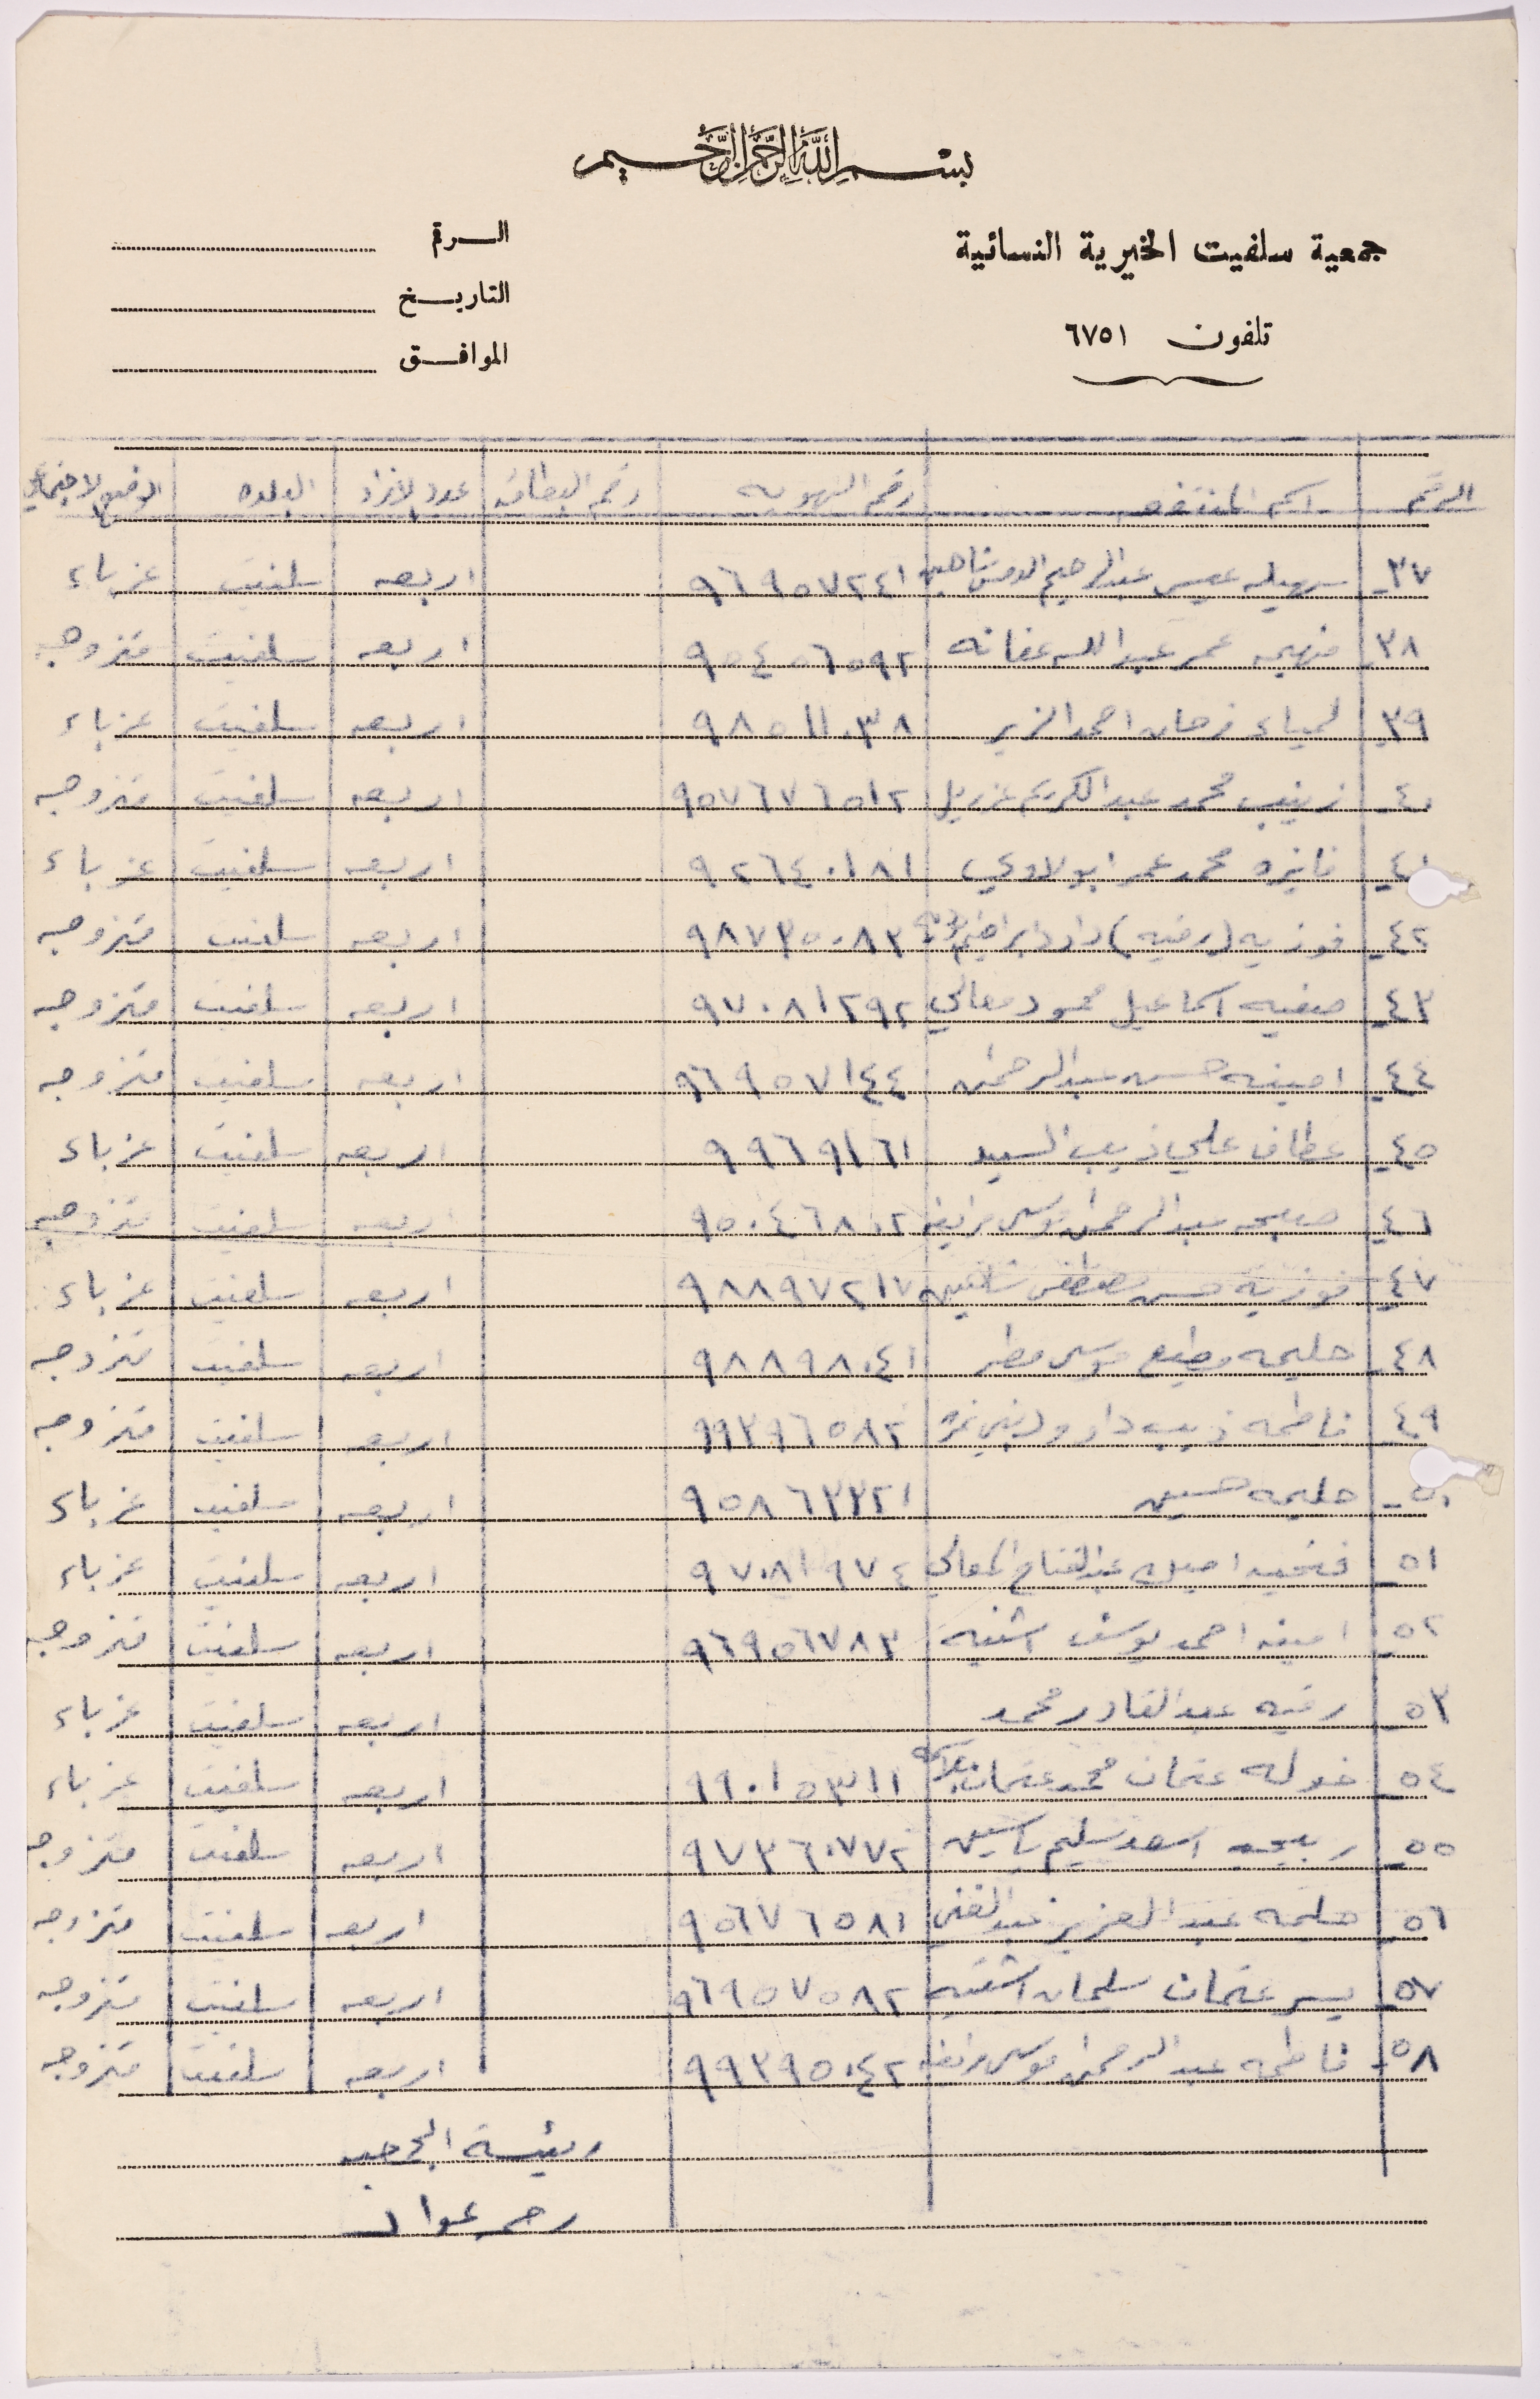 بسم الله الرحمن الرحيم
جمعية سلفيت الخيرية النسائية
تلفون ٦٧٥١
الرقم
التاريخ
الموافق
الرقم اسم المنتفعه رقم الهويه رقم البطاقة عدد الافراد البلده الوضع الاجتماعي
٣٧ سهيله عيسى عبدالرحيم شاهين ٩٦٩٥٧٢٤١ اربعه سلفيت عزباء
٣٨ فهيمه عمر عبدالله عفانه ٩٥٤٥٦٥٩٢ اربعه سلفيت متزوجه
٣٩ لمياء فرحان احمد الزير ٩٨٥١١٠٣٨ اربعه سلفيت عزباء
٤٠ زينب محمد عبدالكريم عزريل ٩٥٧٦٧٦٥١٢ اربعه سلفيت متزوجه
٤١ فايزه محمد عمر ابو لاوي ٩٢٦٤٠١٨١ اربعه سلفيت عزباء
٤٢ فوزيه (رقيه) داود ابراهيم ٩٨٧٣٥٠٨٣ اربعه سلفيت متزوجه
٤٣ صفيه اسماعيل محمود معالي ٩٧٠٨١٢٩٢ اربعه سلفيت متزوجه
٤٤ امينه حسن عبدالرحمن ٩٦٩٥٧١٤٤ اربعه سلفيت متزوجه
٤٥ عطاف علي ذيب السيد ٩٩٦٩١٦١ اربعه سلفيت عزباء
٤٦ صبيحه عبدالرحمن موسى مرايطه ٩٥٠٤٦٨٠٢ اربعه سلفيت متزوجه
٤٧ فوزية حسن مصطفى شاهين ٩٨٨٩٧٢١٧ اربعه سلفيت عزباء
٤٨ حليمه مطيع موسى مطر ٩٨٨٩٨٠٤١ اربعه سلفيت متزوجه
٤٩ فاطمه ذيب داوود بني نمره ٩٩٣٩٦٥٨٢ اربعه سلفيت متزوجه
٥٠ حليمه حسين ٩٥٨٦٣٣٢١ اربعه سلفيت عزباء
٥١ فتحيه عبدالفتاح المعالي ٩٧٠٨١٩٧٤ اربعه سلفيت عزباء
٥٢ امينه احمد يوسف اشتيه ٩٦٩٥٦٧٨٣ اربعه سلفيت متزوجه
٥٣ رقيه عبدالقادر محمد اربعه سلفيت عزباء
٥٤ خوله عثمان محمد عثمان ٩٩٠١٥٣١١ اربعه سلفيت عزباء
٥٥ ربيحه اسعد سليم ياسين ٩٧٣٦٠٧٧٢ اربعه سلفيت متزوجه
٥٦ حليمه عبد العزيز عبدالغني ٩٥٦٧٦٥٨١ اربعه سلفيت متزوجه
٥٧ يسر عثمان سليمان اشتيه ٩٦٩٥٧٥٨٢ اربعه سلفيت متزوجه
٥٨ فاطمه عبد الرحمن موسى مرايطه ٩٩٣٩٥٠٤٢ اربعه سلفيت متزوجه
رئيسة الجمعيه